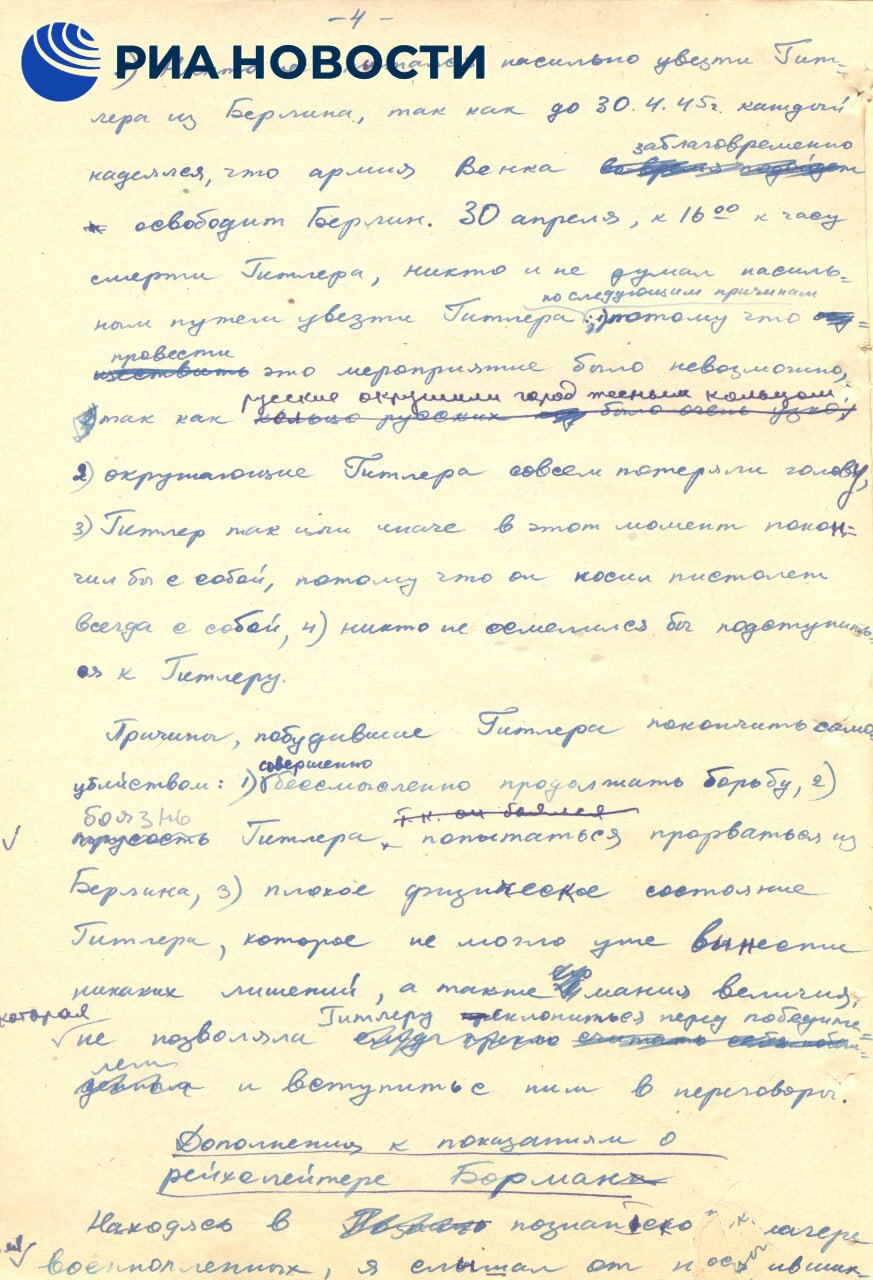 -4-
РИА НОВОСТИ
насильно увезти Гит-
лера из Берлина, так как до 30.4.45г. каждый
заблаговременно
надеялся, что армия Венка
освободит Берлин. 30 апреля, к 16⁰⁰ к часу
смерти Гитлера, никто и не думал насиль-
по следующим причинам
ным путем увезти Гитлера: 1) потому что
провести
это мероприятие было невозможно,
русские окружили город тесным кольцом;
так как кольцо русских было очень узко,
2) окружающие Гитлера совсем потеряли голову,
3) Гитлер так или иначе в этот момент покон-
чил бы с собой, потому что он носил пистолет
всегда с собой, 4) никто не осмелился бы подступить-
ся к Гитлеру.
Причины, побудившие Гитлера покончить само-
совершенно
убийством: 1) бессмысленно продолжать борьбу, 2)
боязнь т.к. он боялся
трусость Гитлера попытаться прорваться из
Берлина, 3) плохое физическое состояние
Гитлера, которое не могло уже вынести
никаких лишений, а также мания величия,
которая Гитлеру преклониться перед победите-
не позволяла считать себя
лем
и вступить с ним в переговоры.
Дополнения к показаниям о
рейхслейтере Борман
Находясь в познанско лагере
военнопленных, я слышал от